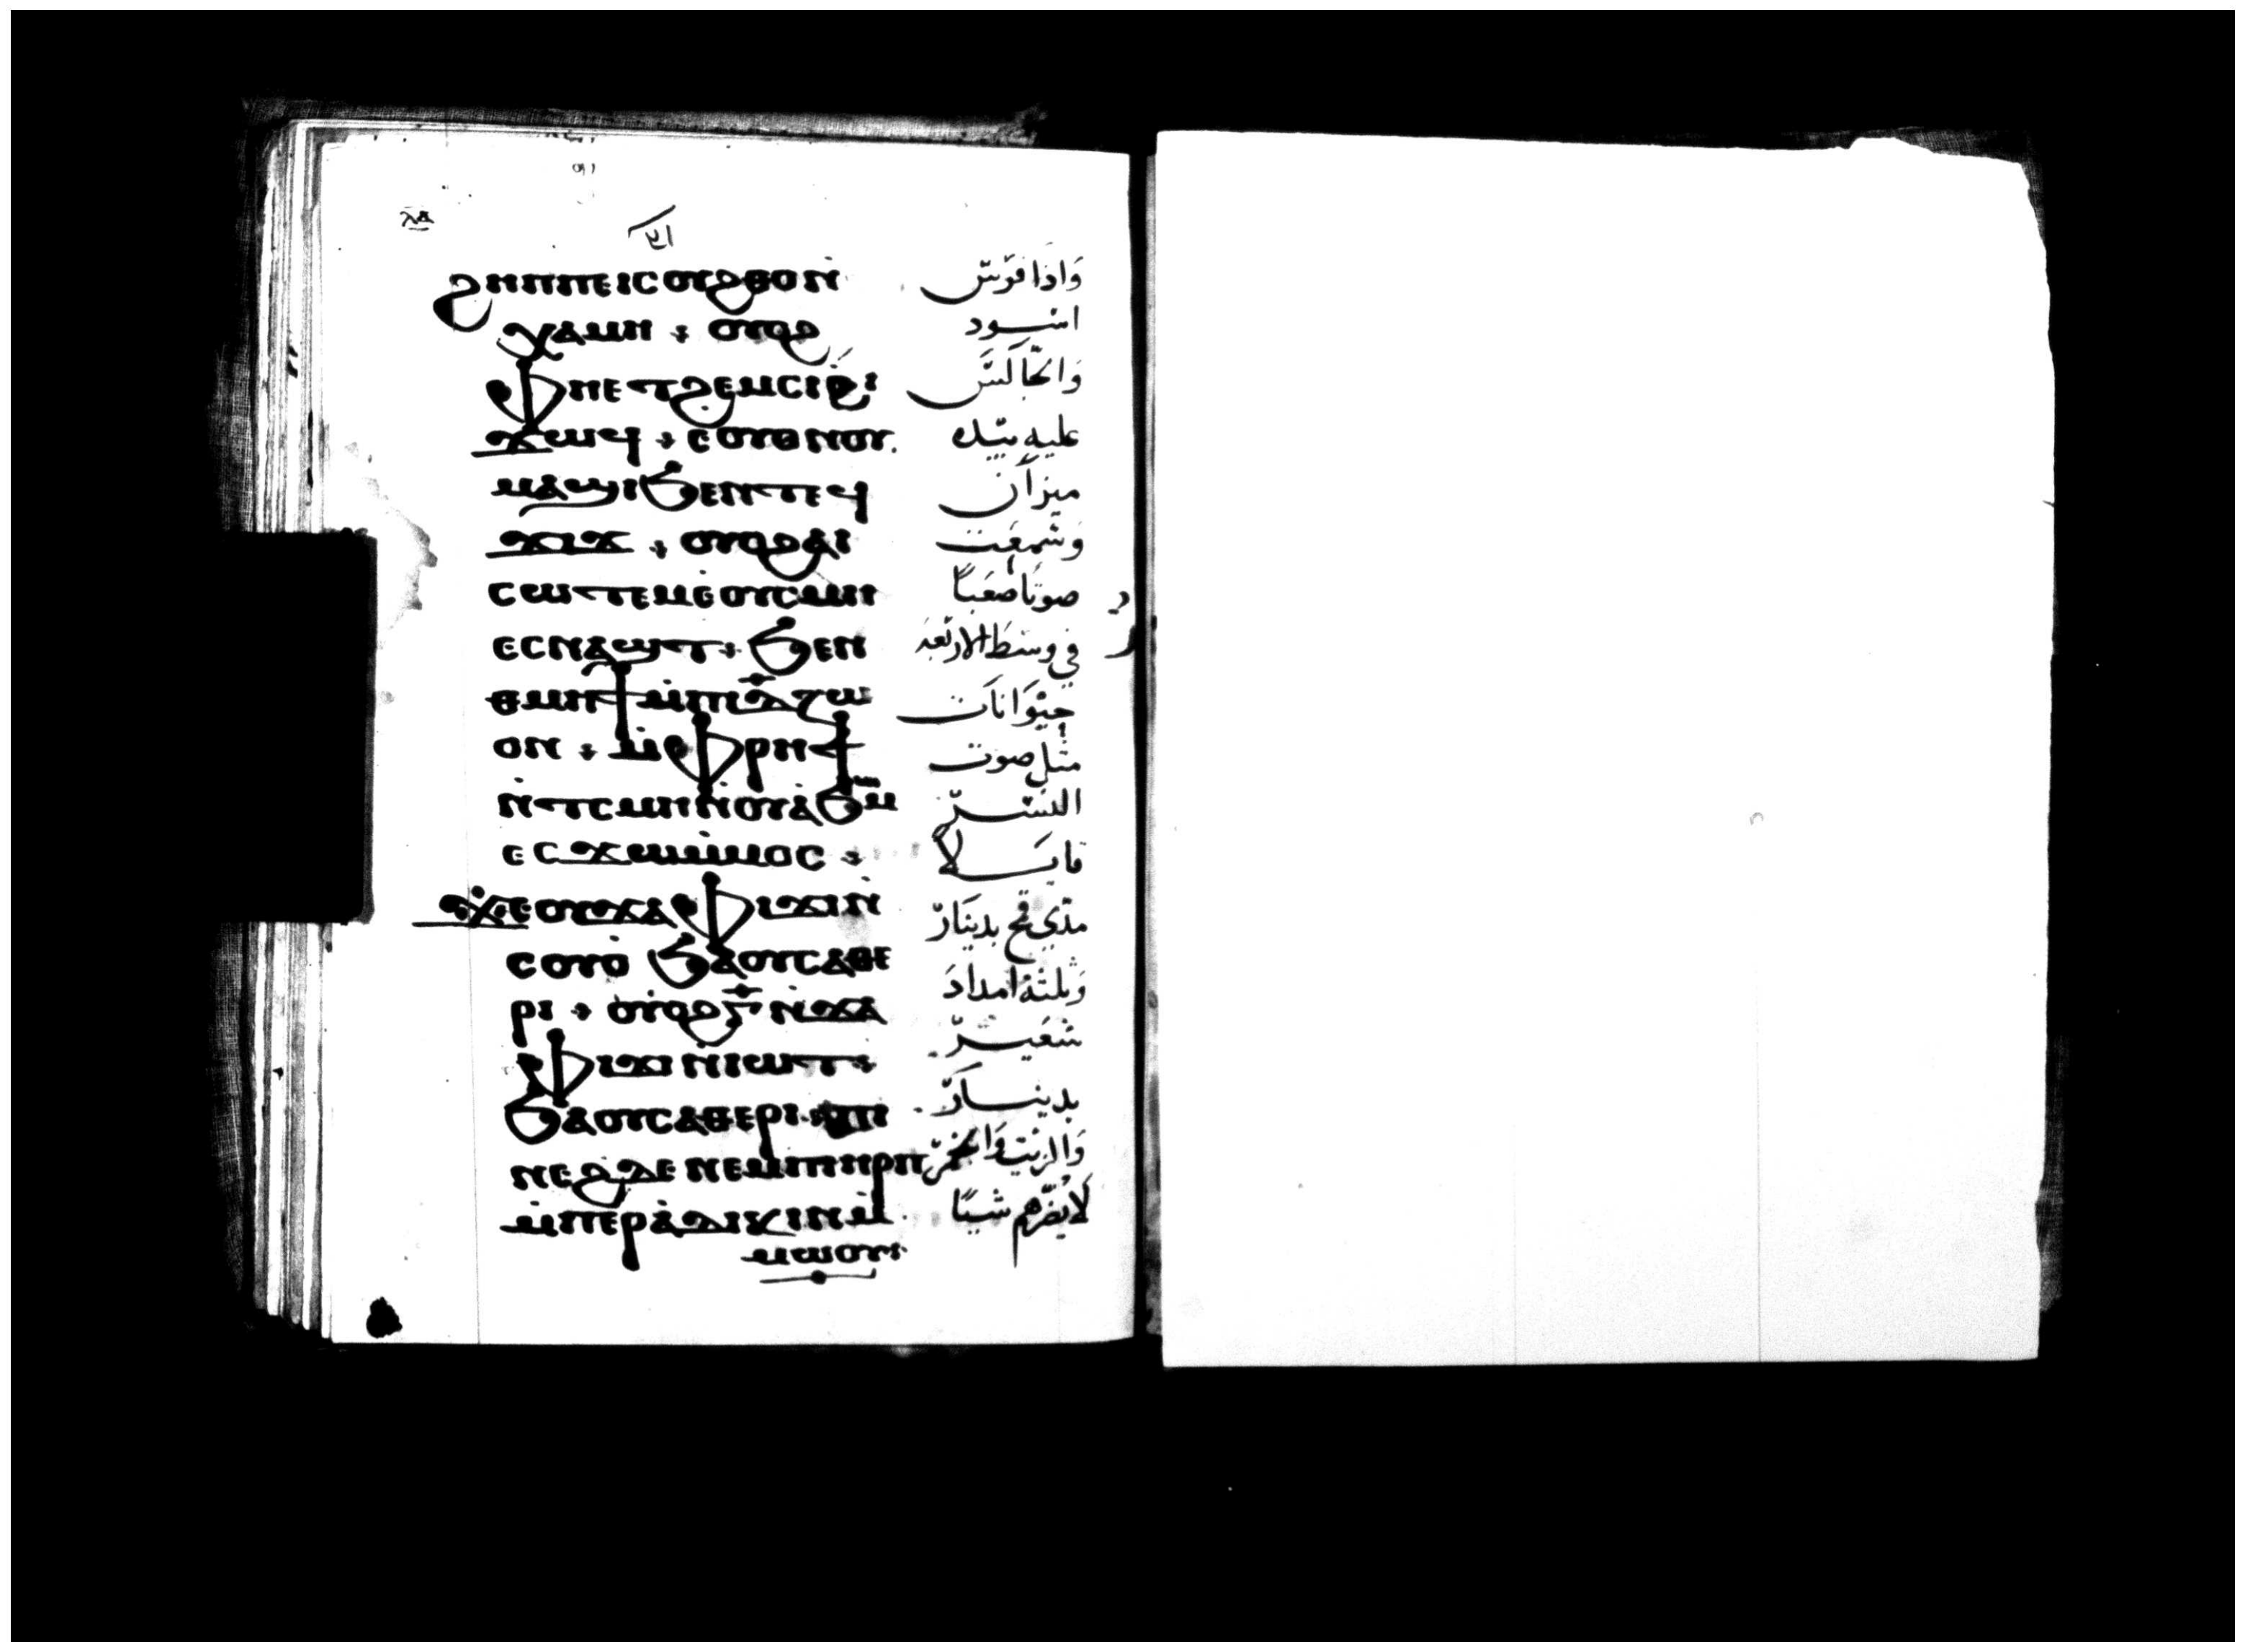 ⲗⲁ
ϩⲏⲡⲡⲉ ⲓⲥ ⲟⲩϩⲑⲟ ⲛ̀
ⲭⲁⲙⲏ ⲟⲩⲟϩ
ⲫⲏⲉⲧϩⲉⲙⲥⲓ ϩⲓ
ϫⲱϥ ⲉⲟⲩⲟⲛ ⲟⲩ
ⲙⲁϣⲓ ϧⲉⲛ ⲧⲉϥ
ϫⲓϫ ⲟⲩⲟϩ ⲁⲓ
ⲥⲱⲧⲉⲙ ⲉ̀ⲟⲩⲥⲙⲏ
ⲉⲥⲛⲁϣⲧ ϧⲉⲛ
ⲑⲙⲏϯ ⲙ̀ⲡⲓⲇ̅ ⲛ̀ⲍⲱ
ⲟⲛ ⲙ̀ⲫⲣⲏϯ
ⲛ̀ⲧⲥⲙⲏ ⲛ̀ⲟⲩⲁ̀ϧⲱⲙ
ⲉⲥϫⲱ ⲙ̀ⲙⲟⲥ
ϫⲉ ⲟⲩϫⲁⲫⲓϫⲓ ⲛ̀
ⲥⲟⲩⲟ̀ ϧⲁ ⲟⲩⲥⲁⲑⲉ
ⲣⲓ ⲟⲩⲟϩ ⲅ̅ ⲛ̀ϫⲁ
ⲫⲓϫⲓ ⲛ̀ⲓⲱⲧ
ϧⲁ ⲟⲩⲥⲁⲑⲉⲣⲓ ⲡⲓ
ⲛⲉϩ ⲇⲉ ⲛⲉⲙ ⲡⲓⲏⲣⲡ
ⲙ̀ⲡⲉⲣⲁ̀ⲇⲓⲕⲓⲛ ⲙ̀
ⲙⲱⲟⲩ
وَاذا فرَس
اسود
وَالجَالسَ
عليه بيَده
ميزان
وَسَمعَت
صوتًا صَعبًا
في وسَط الاربَعَة
حيوَانات
مثل صوت
النسَر
قايَلا
مدي قمح بدينَار
وَثلثة امداد
شعَير
بدينَار
وَالزيت وَالخمَر
لا يضَرهم شيئًا